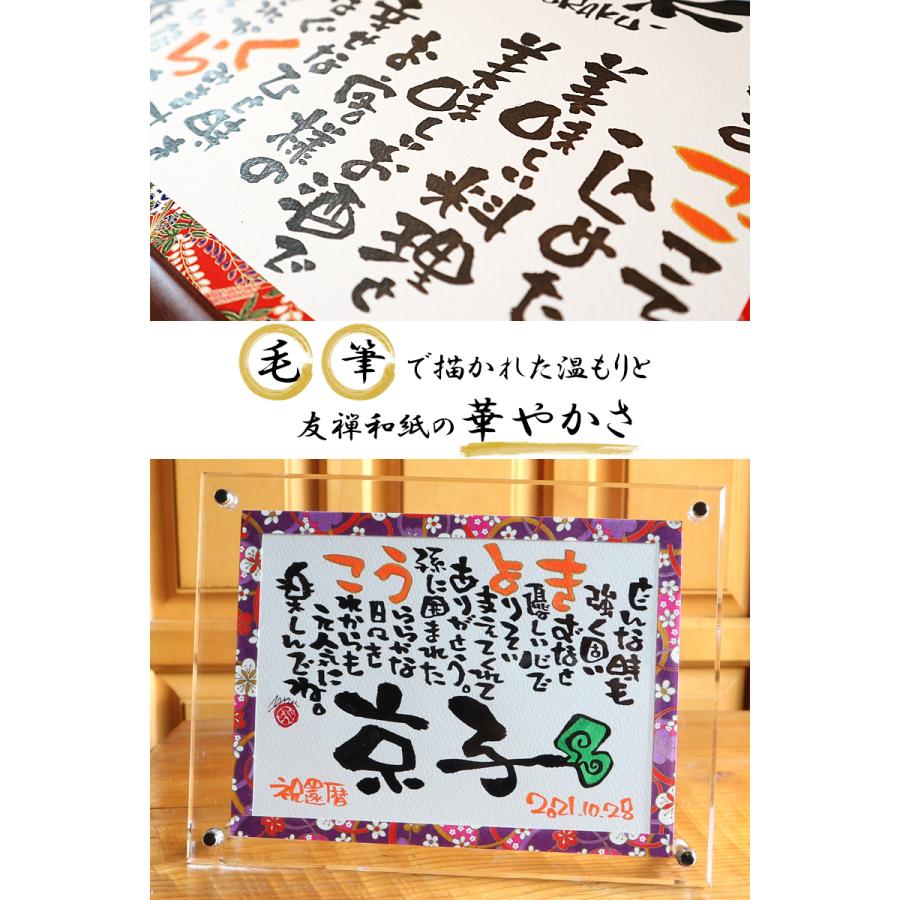 こめた
美味しい
料理と
美味しい
お酒で
お客様の
毛筆で描かれた温もりと
友禅和紙の華やかさ
どんな時も
強く固い
きずなと
優しい心で
よりそい
支えてくれて
ありがとう。
孫に囲まれた
うららかな
日々を
これからも
元気に
楽しんでね。
京子
祝還暦
2021.10.28